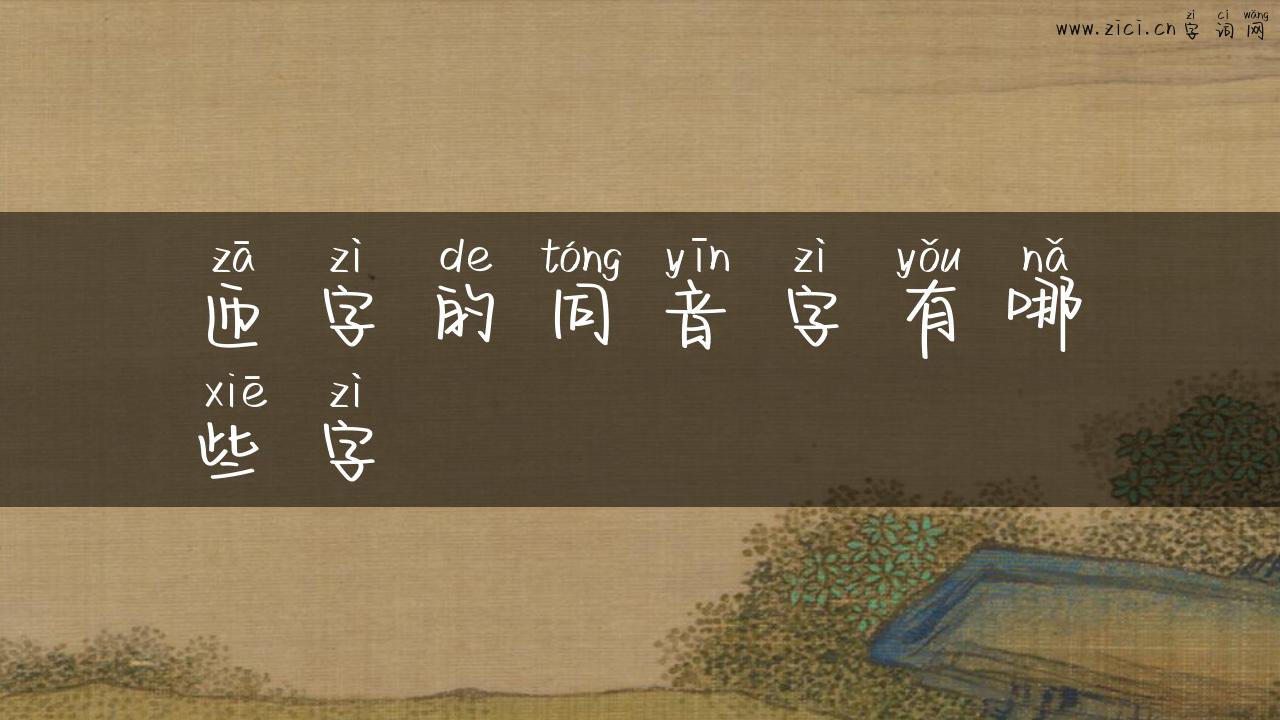 zì cí wǎng
www.zici.cn 字词网
zā zì de tóng yīn zì yǒu nǎ
匝字的同音字有哪
xiē zì
些字